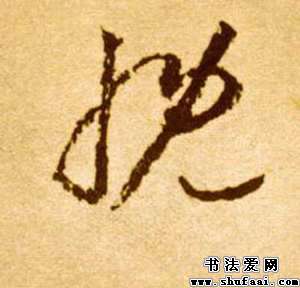 挽
书法爱网
www.shufaai.com